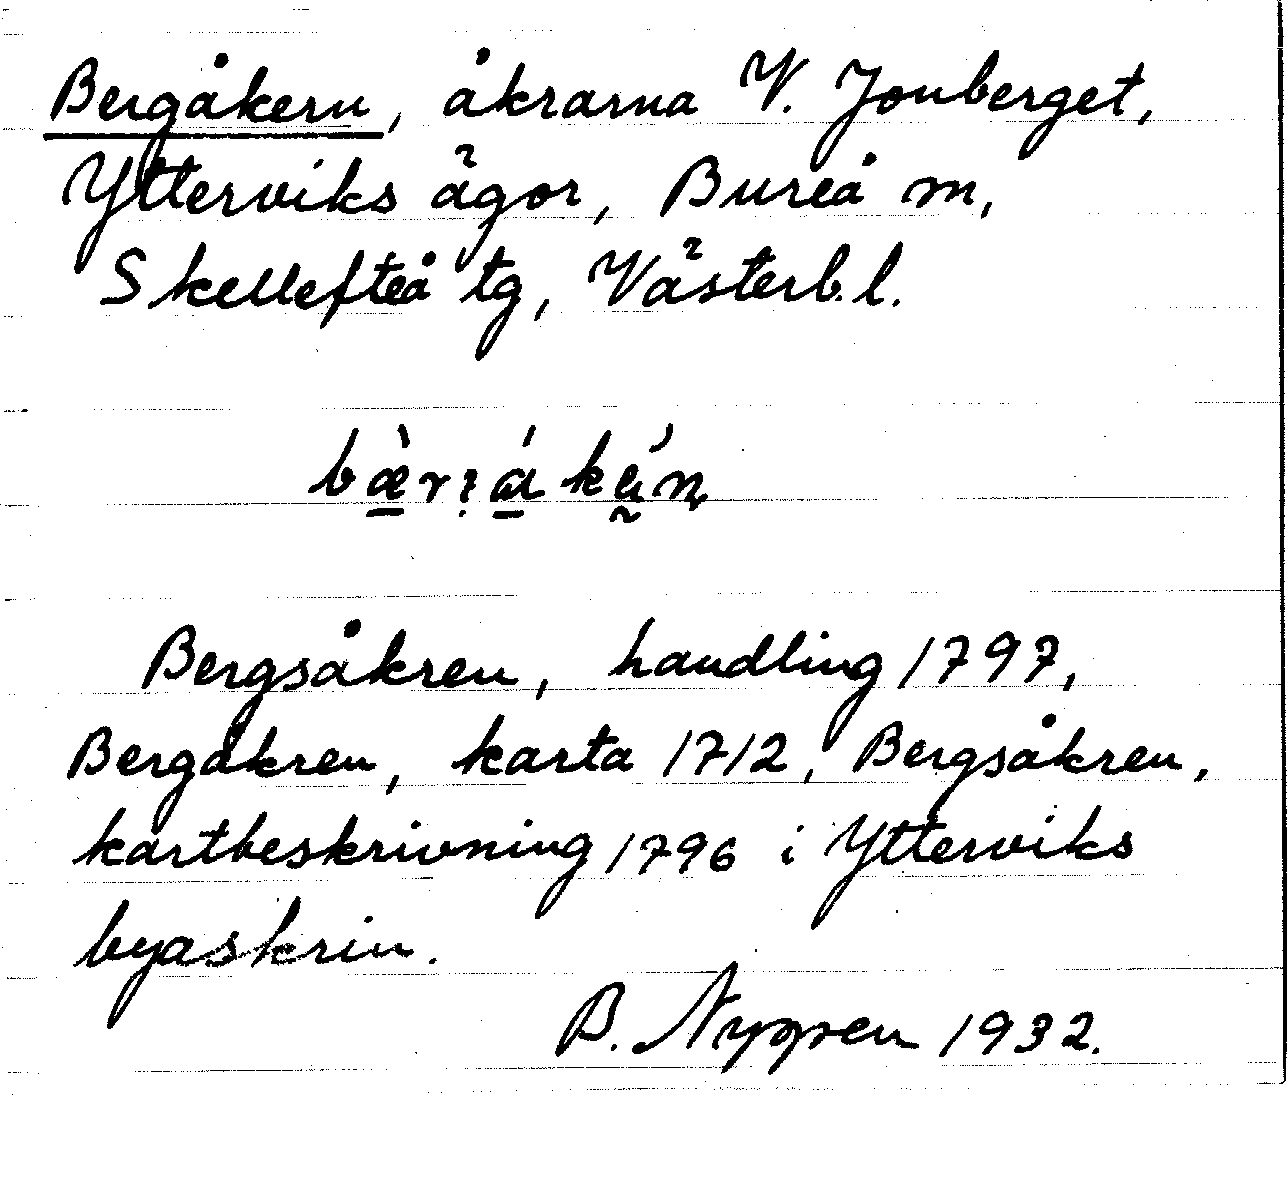 Bergåkern, åkrarna V. Jonberget,
Ytterviks ägor, Bureå m,
Skellefteå tg, Västerb. l.
Bergsåkren, handling 1797,
Bergåkren, karta 1712, Bergsåkren,
kartbeskrivning 1796 i Ytterviks
byaskrin.
B. Nygren 1932.